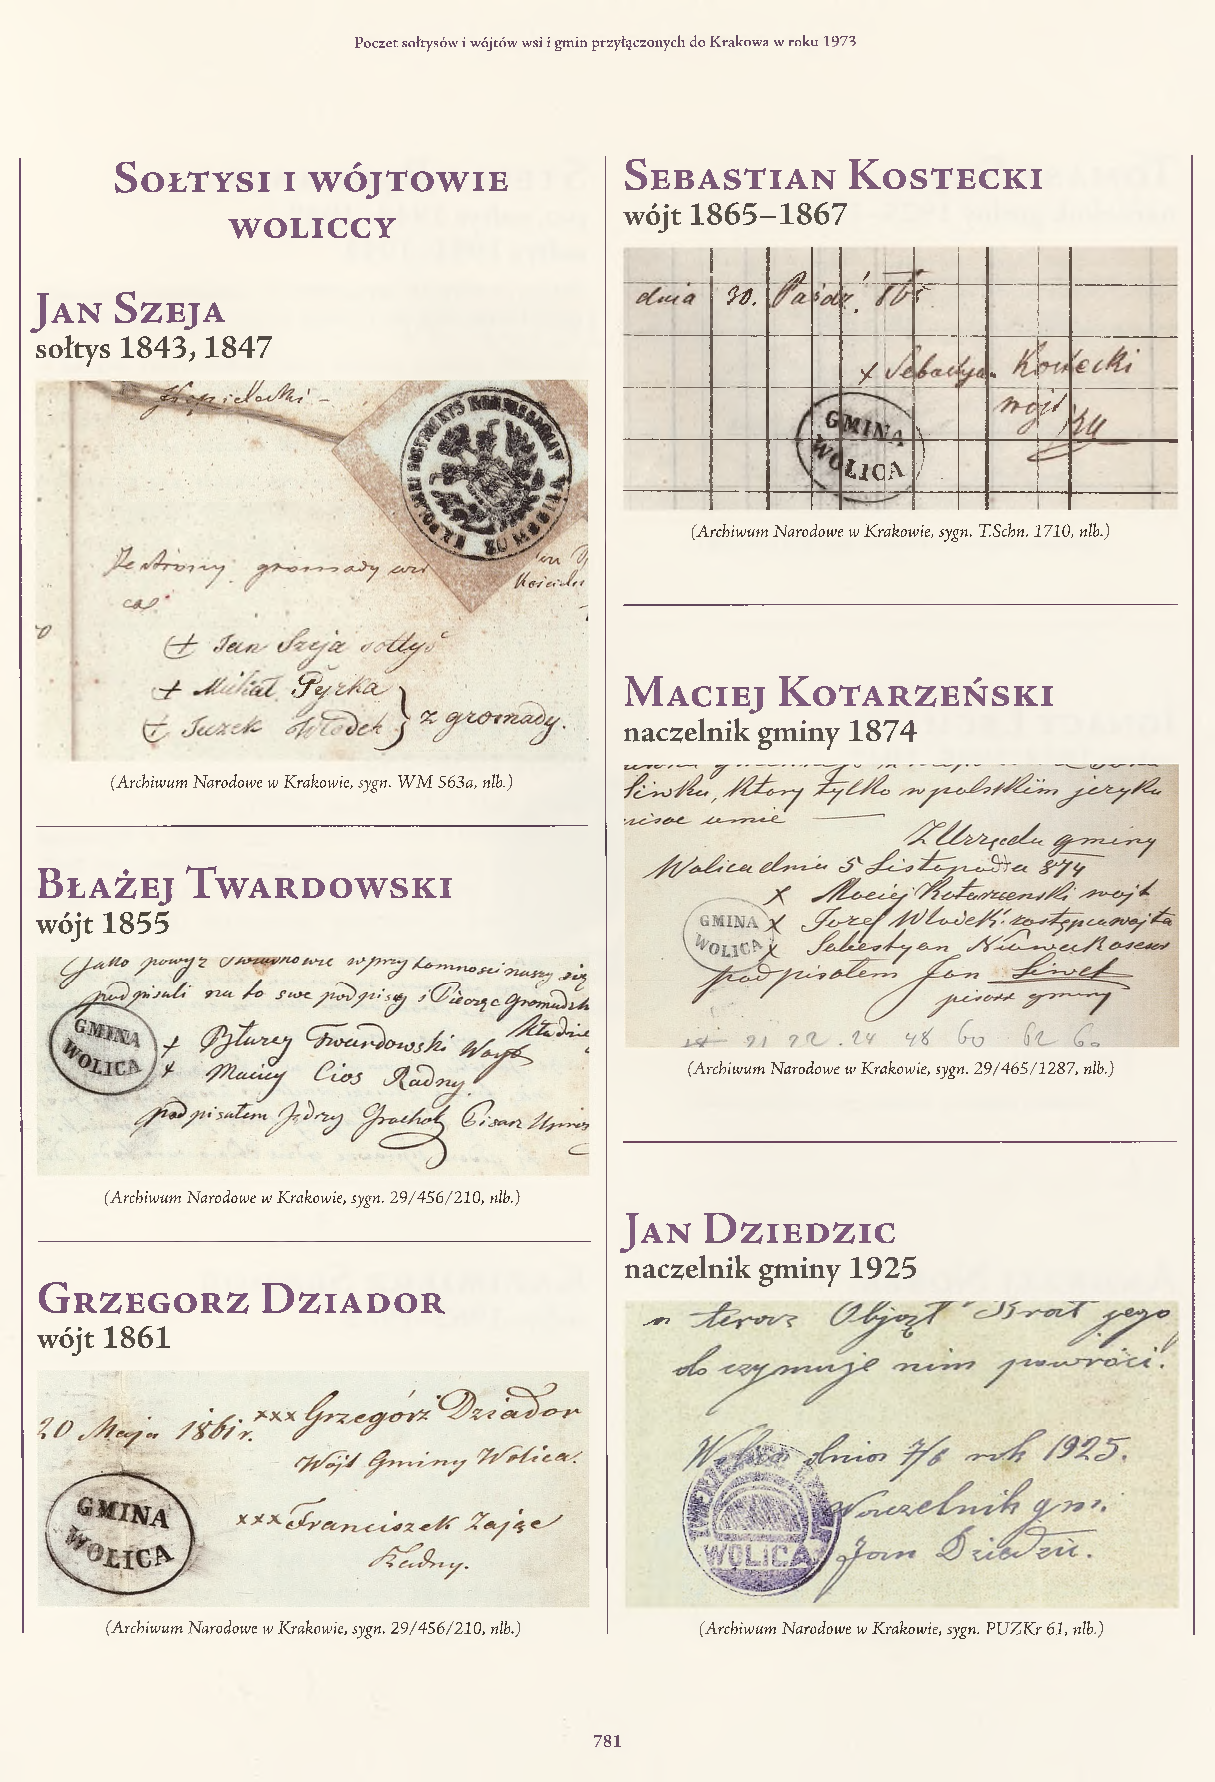 Poczet sołtysów i wójtów wsi i gmin przyłączonych do Krakowa w roku 1973
Sołtysi i wójtowie
woliccy
Jan Szeja
sołtys 1843, 1847
Ze strony gromady
Jan Szeja sołtys
Michał Pyrka
Juzek Włodek } z gromady.
(Archiwum Narodowe w Krakowie, sygn. WM 563a, nlb.)
Błażej Twardowski
wójt 1855
Jako powyz w przytomnosci naszy się
podpisali na to swe podpisy i Pieorzęc Gromadzk
GMINA
WOLICA
+ Błazey Twardowski Woyt
+ Maciey Cios Radny
podpisałem Jędrzy Grochot Pisarz
(Archiwum Narodowe w Krakowie, sygn. 29/456/210, nlb.)
Grzegorz Dziador
wójt 1861
20 Maja 1861 r. xxx Grzegórz Dziador
Wójt Gminy Wolica.
GMINA
WOLICA
xxx Franciszek Zając
Radny.
(Archiwum Narodowe w Krakowie, sygn. 29/456/210, nlb.)
Sebastian Kostecki
wójt 1865–1867
dnia 30. Paźdź.
x Sebastyan Kostecki
wójt
GMINA
WOLICA
(Archiwum Narodowe w Krakowie, sygn. T.Schn. 1710, nlb.)
Maciej Kotarzeński
naczelnik gminy 1874
Siwku, ktory tylko w polskim jeryku
pisac umie
Z Urzędu gminy
Wolica dnia 5 Listopada 874
x Maciej Kotarzenski wojt
GMINA
WOLICA
x Jozef Włodek zastępca wojta
x Sebestyan
podpisałem Jan Siwek
pisarz gminy
(Archiwum Narodowe w Krakowie, sygn. 29/465/1287, nlb.)
Jan Dziedzic
naczelnik gminy 1925
a teraz Objął Brat jego
do czymuje nim powróci.
Wolica dnia 7/6 rok 1925.
Naczelnik gmi.
WOLICA
Jan Dziedzic.
(Archiwum Narodowe w Krakowie, sygn. PUZKr 61, nlb.)
781